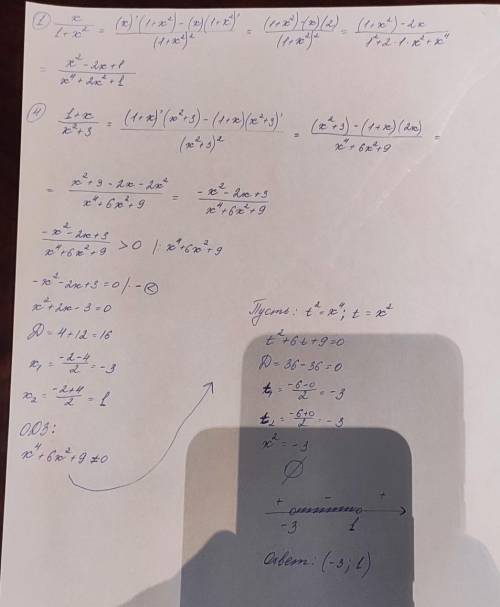 ① x/(1+x²) = ((x)'(1+x²) − (x)(1+x²)')/(1+x²)² = ((1+x²) − (x)(2))/(1+x²)² = ((1+x²) − 2x)/(1²+2·1·x²+x⁴)
= (x²−2x+1)/(x⁴+2x²+1)
④ (1+x)/(x²+3) = ((1+x)'(x²+3) − (1+x)(x²+3)')/(x²+3)² = ((x²+3) − (1+x)(2x))/(x⁴+6x²+9) =
= (x²+3−2x−2x²)/(x⁴+6x²+9) = (−x²−2x+3)/(x⁴+6x²+9)
(−x²−2x+3)/(x⁴+6x²+9) > 0 |: x⁴+6x²+9
−x²−2x+3=0 /·− <
x²+2x−3=0
D=4+12=16
x₁ = (−2−4)/2 = −3
x₂ = (−2+4)/2 = 1
ООЗ:
x⁴+6x²+9≠0
Пусть: t²=x⁴; t=x²
t²+6t+9=0
D=36−36=0
t₁ = (−6−0)/2 = −3
t₂ = (−6+0)/2 = −3
x²=−3
∅
+ − +
−3 1
Ответ: (−3; 1)